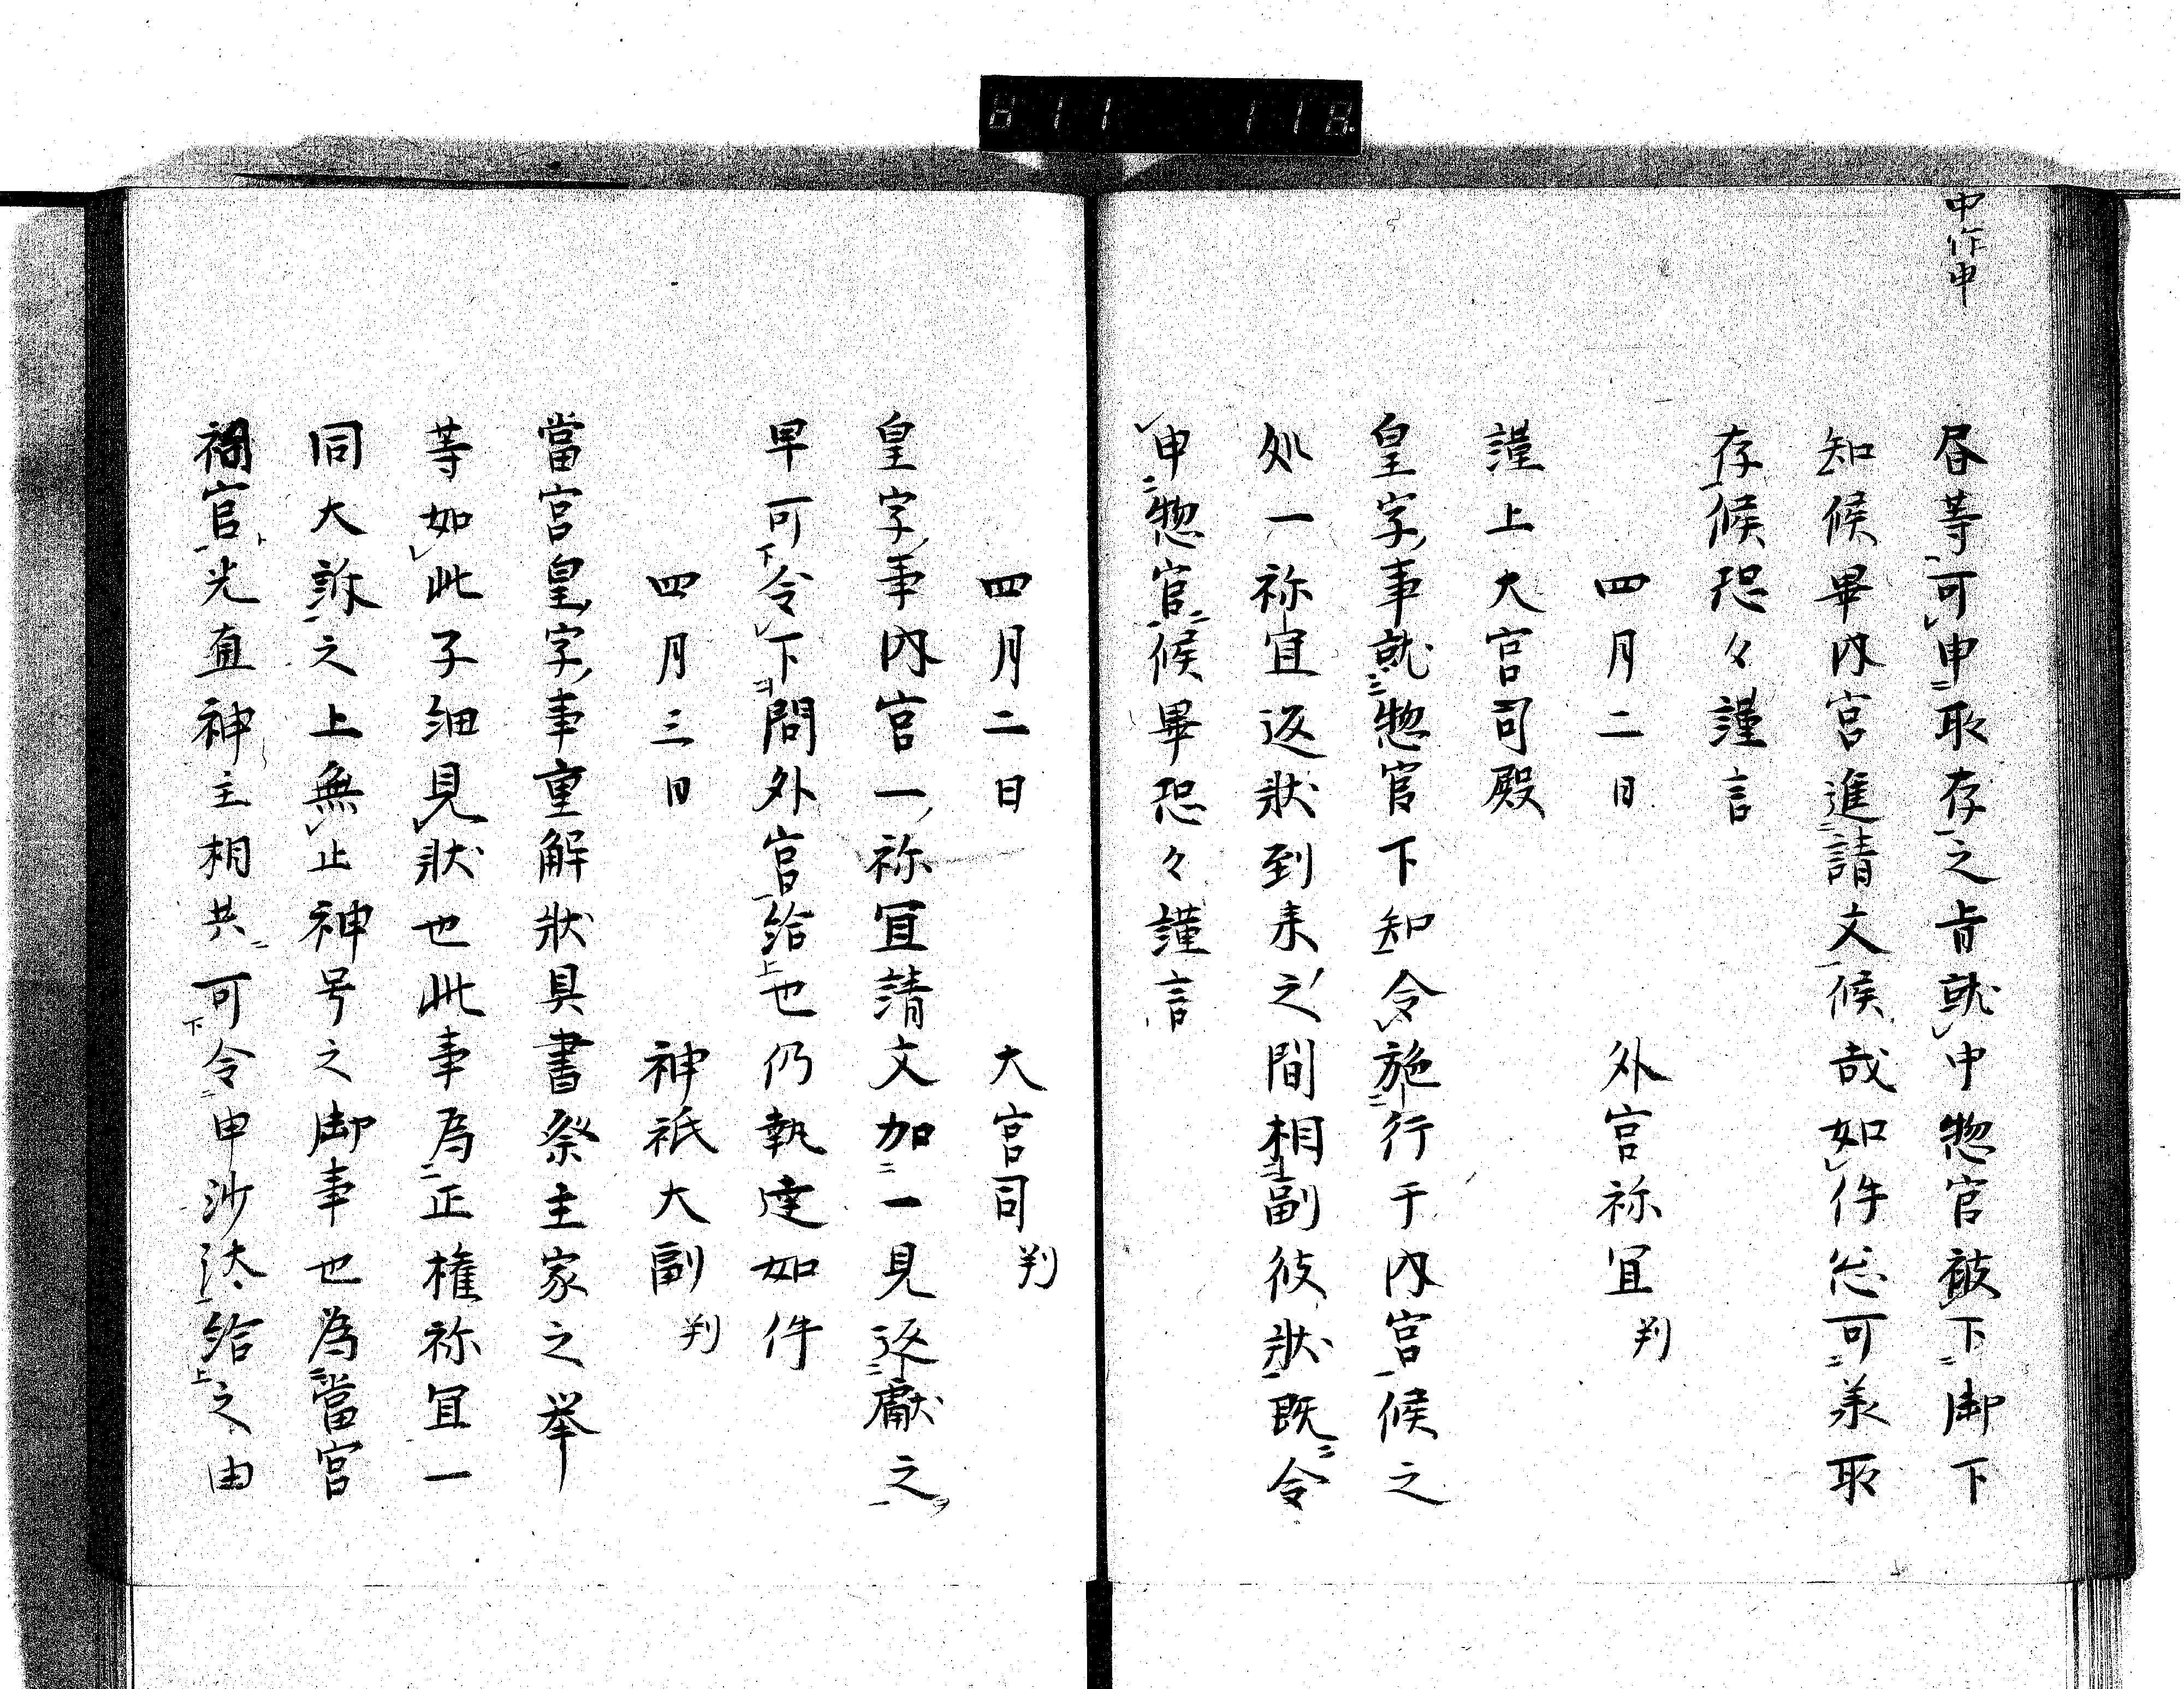 中作申
昬等可申取存之旨就中惣官被下御下
知候畢内宮進請文候哉如件忩可兼取
存候恐々謹言
四月二日　外宮祢宜判
謹上大宮司殿
皇字事就惣官下知令施行于内宮候之
処一祢宜返狀到来之間相副彼狀既令
申惣官候畢恐々謹言
四月二日　大宮司判
皇字事内宮一祢宜請文加一見返獻之
早可令下問外宮給也仍執達如件
四月三日　神祇大副判
當宮皇字事重解狀具書祭主家之挙
等如此子細見狀也此事為正権祢宜一
同大訴之上無止神号之御事也為當宮
祠官光直神主相共可令申沙汰給之由